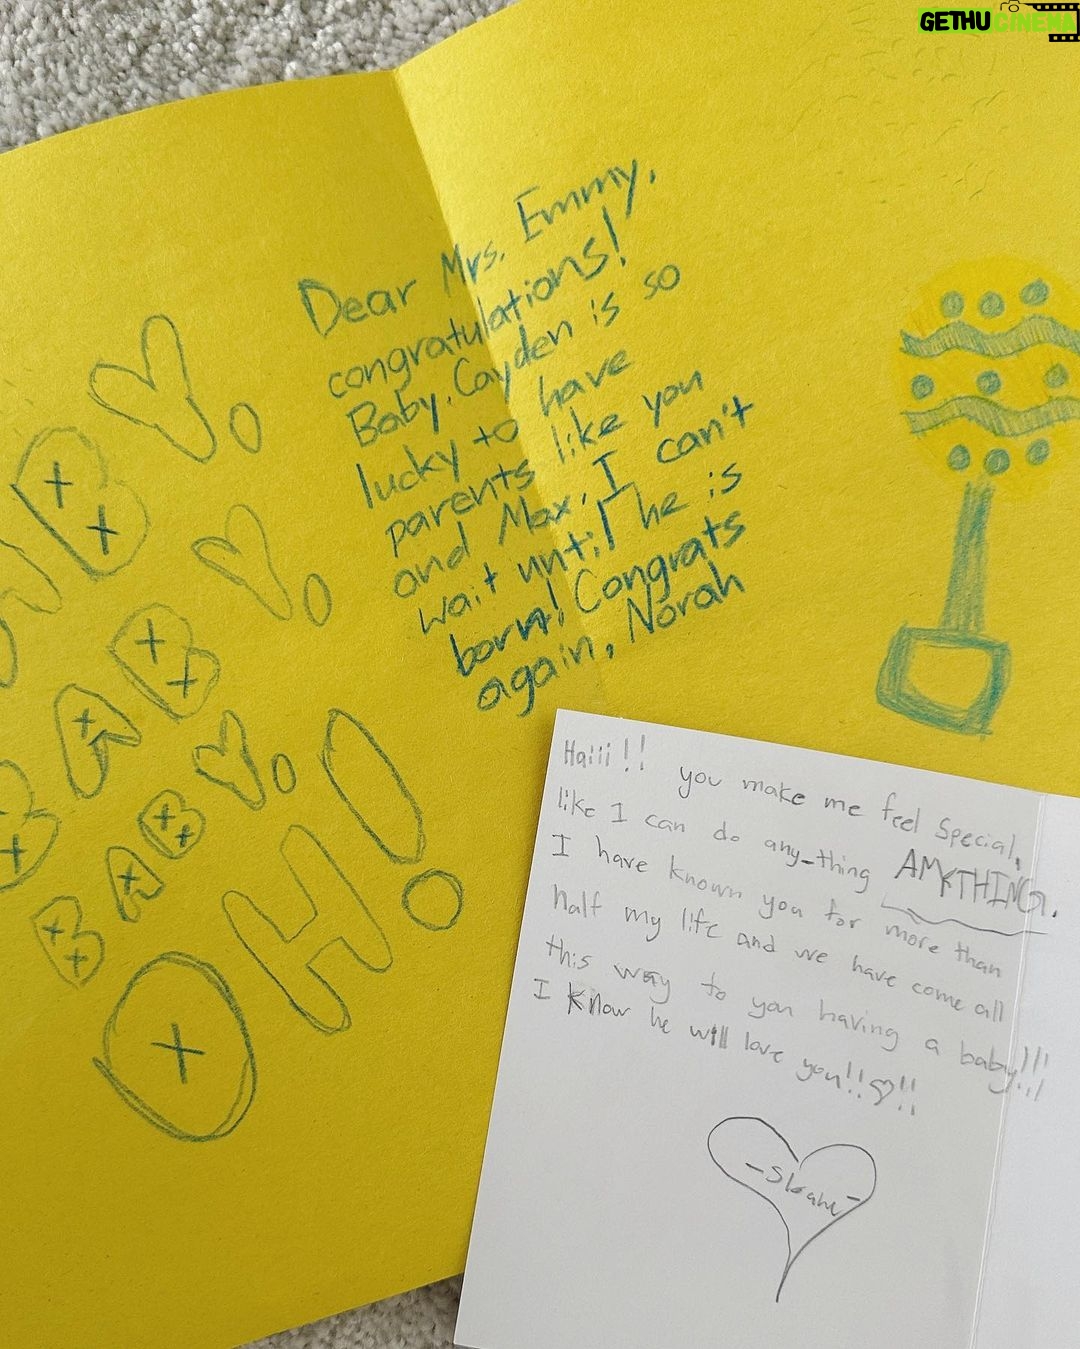 GETHUCINEMA
Dear Mrs. Emmy,
congratulations!
Baby Cayden is so
lucky to have
parents like you
and Max. I can't
wait until he is
born! Congrats
again, Norah
BABY!
BABY!
BABY!
OH!
Haiii!! you make me feel special,
like I can do any-thing ANYTHING.
I have known you for more than
half my life and we have come all
this way to you having a baby!!!
I know he will love you!!♡!!
-Sloane-